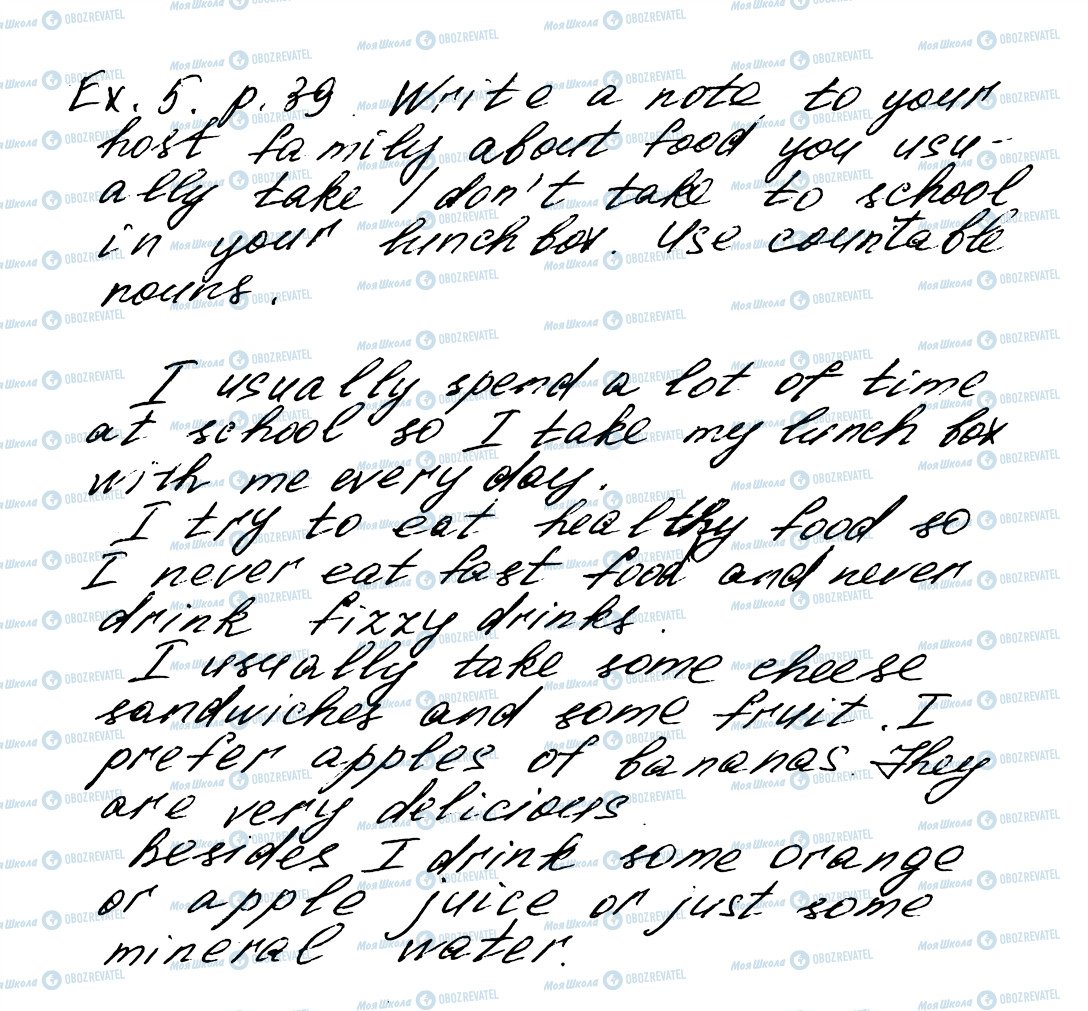 Ex. 5. p. 39. Write a note to your
host family about food you usu-
ally take / don't take to school
in your lunch box. Use countable
nouns.
I usually spend a lot of time
at school so I take my lunch box
with me every day.
I try to eat healthy food so
I never eat fast food and never
drink fizzy drinks.
I usually take some cheese
sandwiches and some fruit. I
prefer apples of bananas. They
are very delicious.
Besides I drink some orange
or apple juice or just some
mineral water.